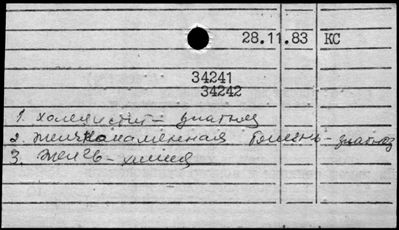 28.11.83 КС
34241
34242
1. холецистит - диагноз
2. желчнокаменная болезнь - диагноз
3. Желчь - химия